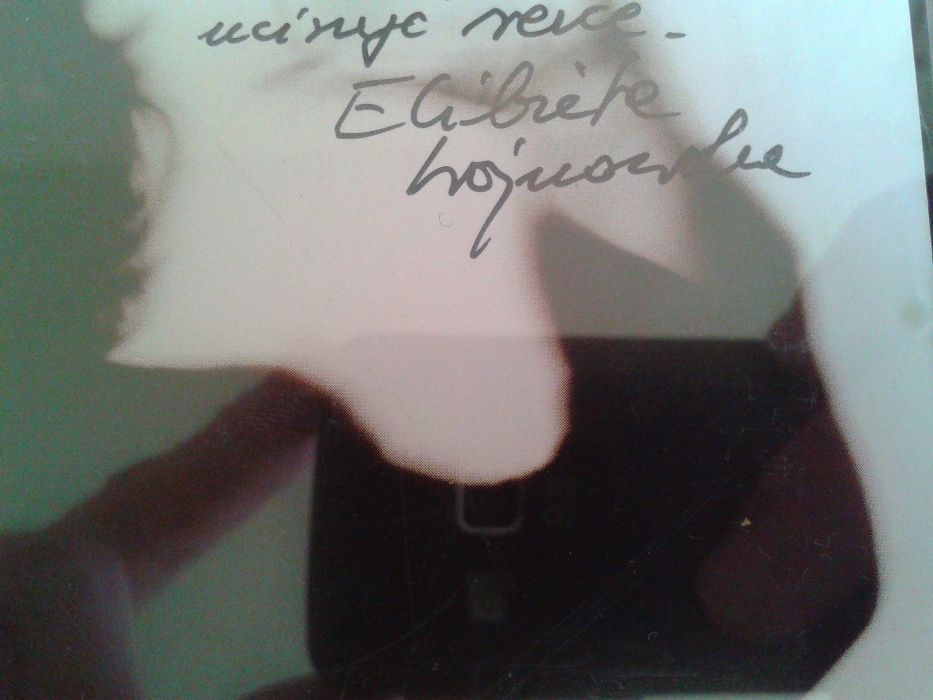 uciszyć serce.
Elżbieta
Wojnowska